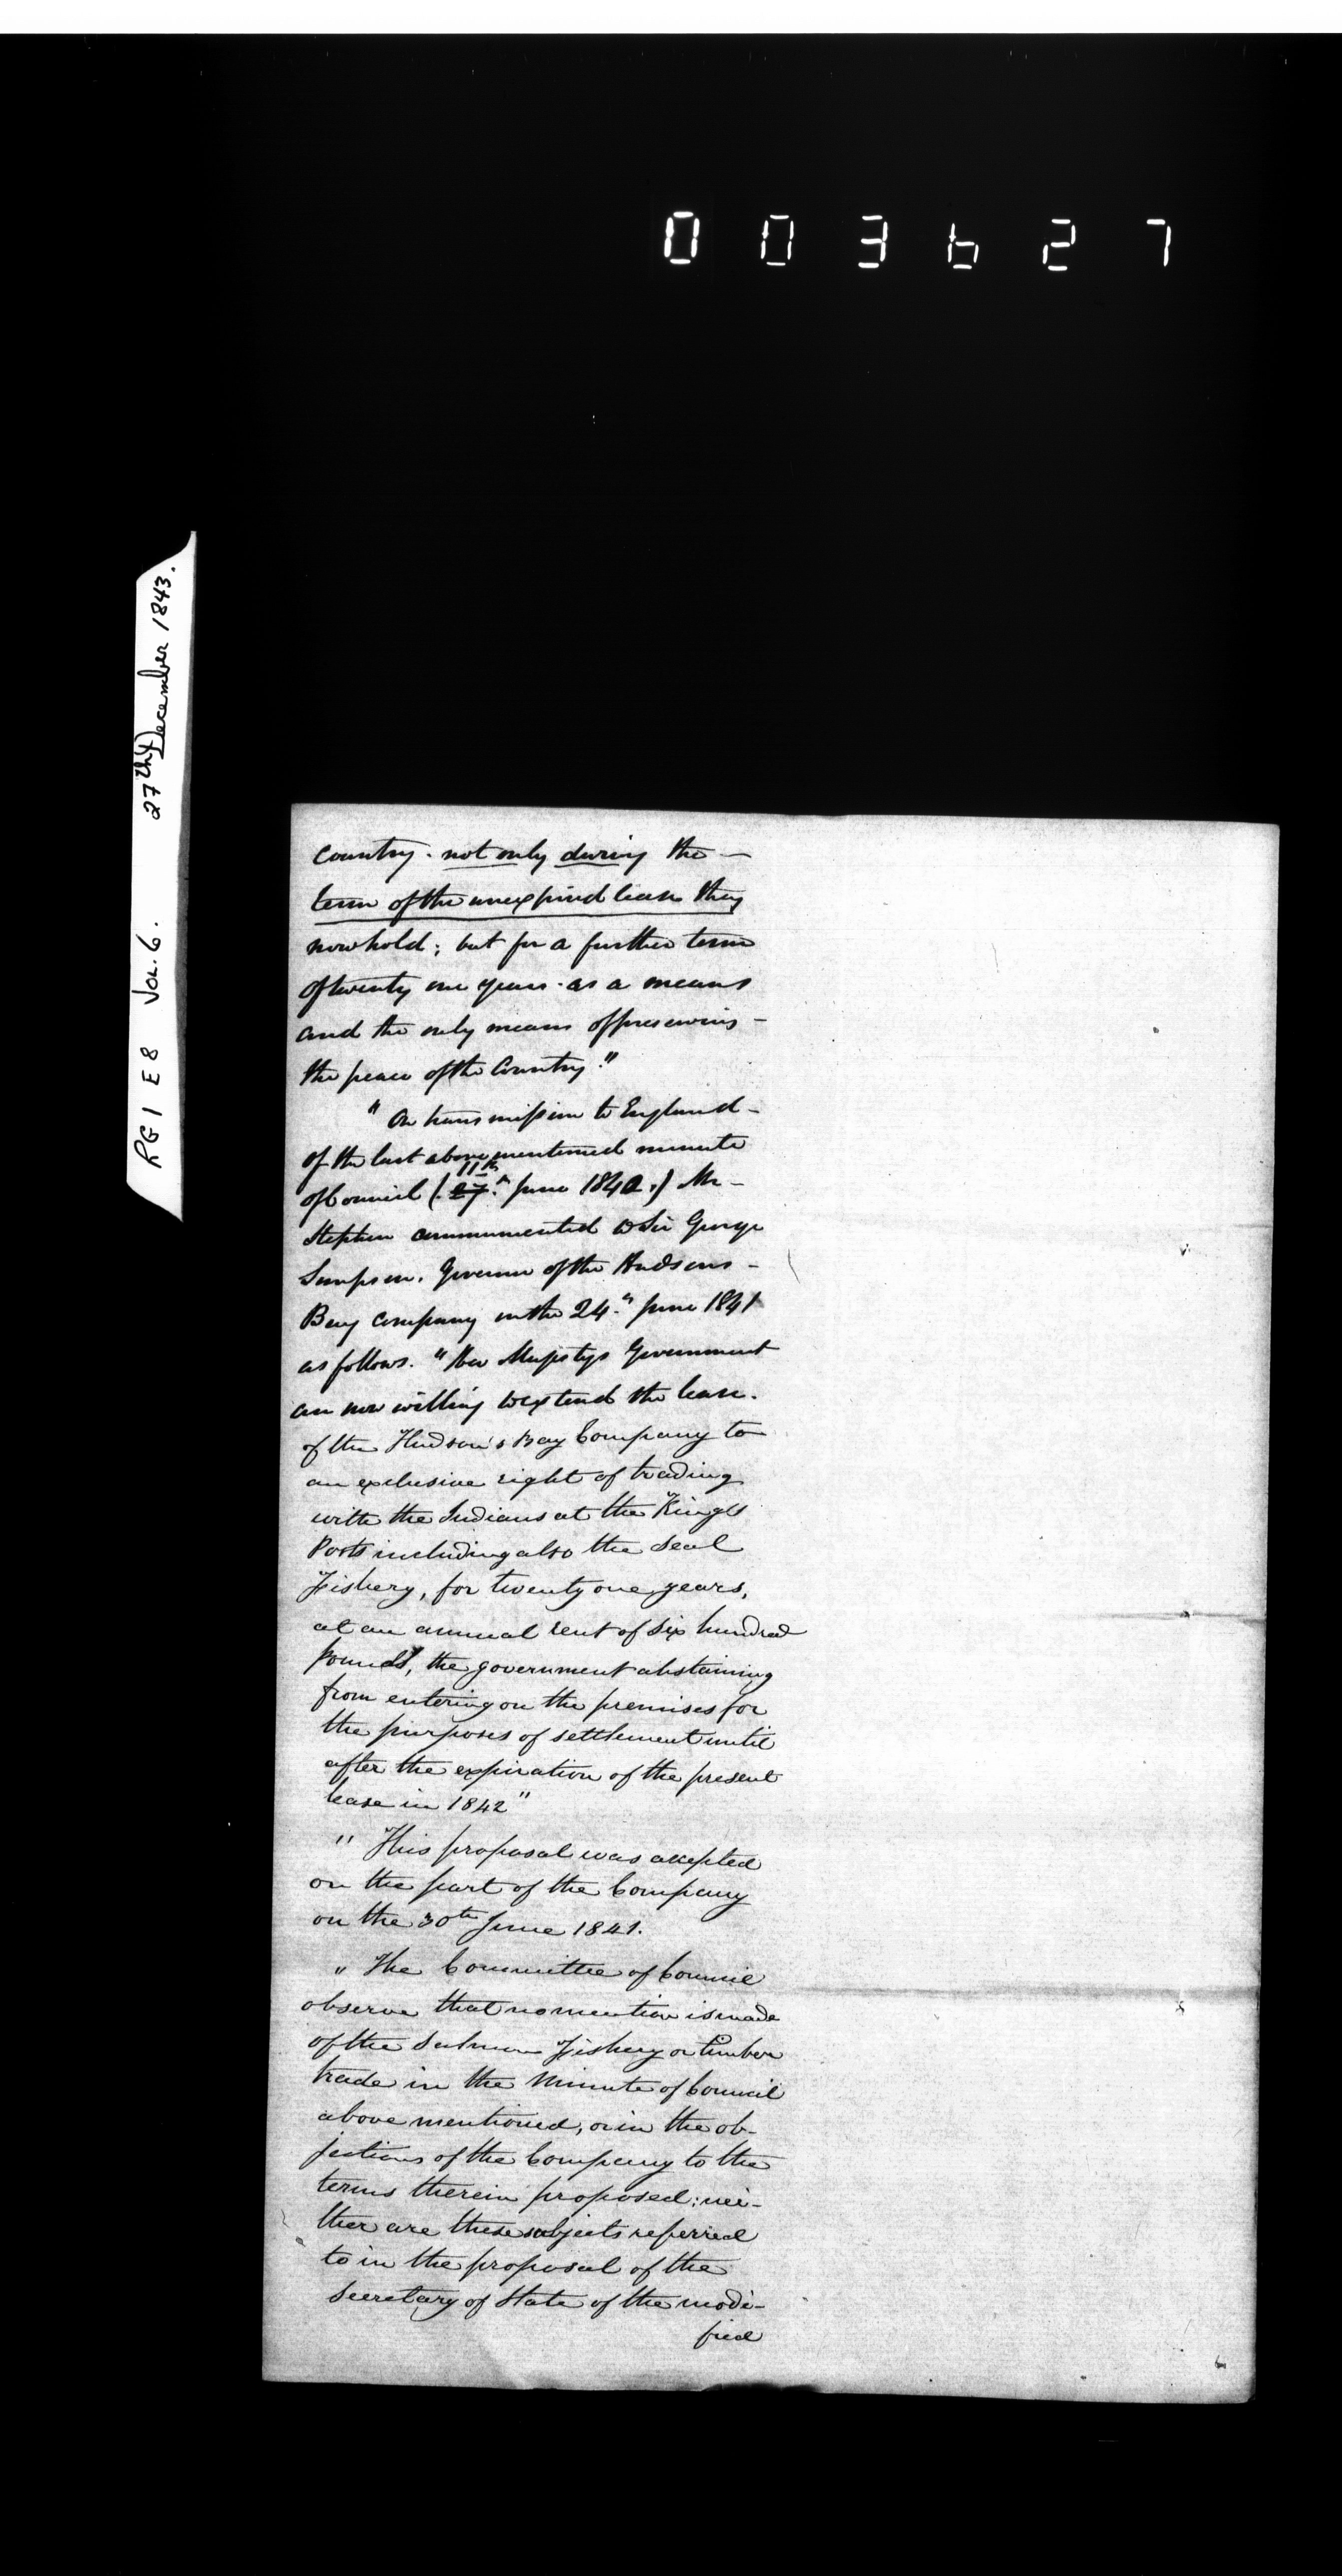 003627
RG1 E8 Vol. 6. 27th December 1843.
Country. not only during the —
term of the unexpired lease they
now hold; but for a further term
of twenty one years. as a means
and the only means of preserving —
the peace of the Country."
"On transmission to England —
of the last above mentioned minute
11th
of Council (27th June 1842.) Mr —
Stephen communicated to Sir George
Simpson. Governor of the Hudsons —
Bay Company on the 24th June 1841
as follows. "Her Majestys Government
are now willing to extend the lease.
of the Hudson's Bay Company to
an exclusive right of trading
with the Indians at the King's
Posts including also the Seal
Fishery, for twenty one years,
at an annual rent of six hundred
pounds, the government abstaining
from entering on the premises for
the purposes of settlement until
after the expiration of the present
lease in 1842"
" This proposal was accepted
on the part of the Company
on the 30th June 1841.
" The Committee of Council
observe that no mention is made
of the Salmon Fishery or timber
trade in the Minute of Council
above mentioned, or in the ob-
jections of the Company to the
terms therein proposed; nei-
ther are these subjects referred
to in the proposal of the
Secretary of State of the modi-
fied